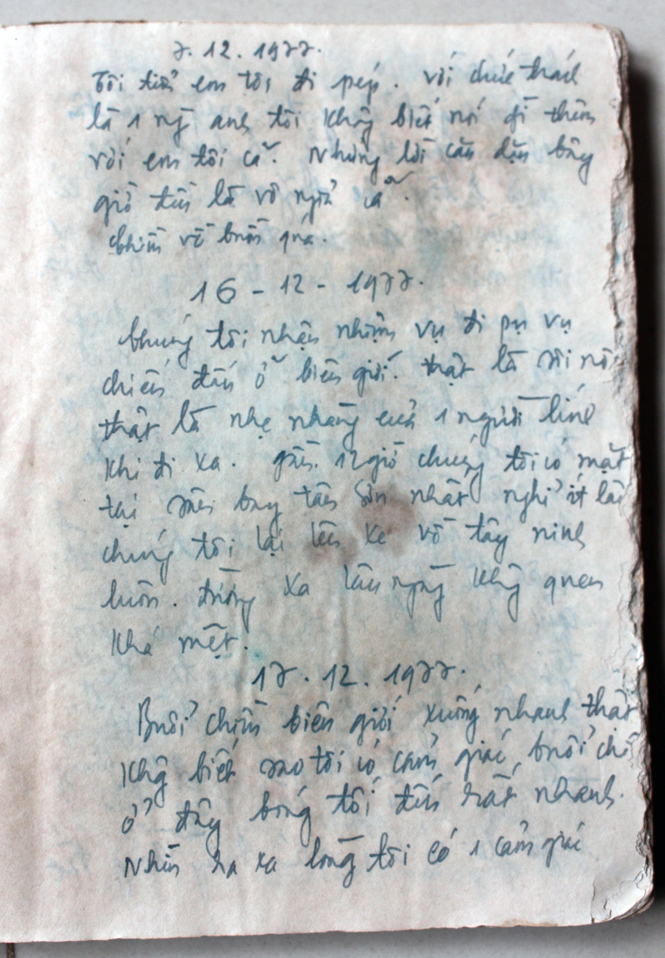 7.12.1977.
Tôi tiễn em tôi đi phép. với chức trách
là 1 ng anh tôi không biết nói gì thêm
với em tôi cả. Những lời căn dặn bây
giờ đều là vô nghĩa cả.
Chiều về buồn quá.
16-12-1977.
Chúng tôi nhận nhiệm vụ đi phục vụ
chiến đấu ở biên giới. thật là sôi nổi
thật là nhẹ nhàng của 1 người lính
khi đi xa. gần 12 giờ chúng tôi có mặt
tại sân bay tân sơn nhất nghỉ ít lâu
chúng tôi lại lên xe về tây ninh
luôn. đường xa lâu ngày không quen
khá mệt.
17.12.1977.
Buổi chiều biên giới xuống nhanh thật
không biết sao tôi có cảm giác buổi
ở đây bóng tối đến rất nhanh.
Nhìn ra xa lòng tôi có 1 cảm giác